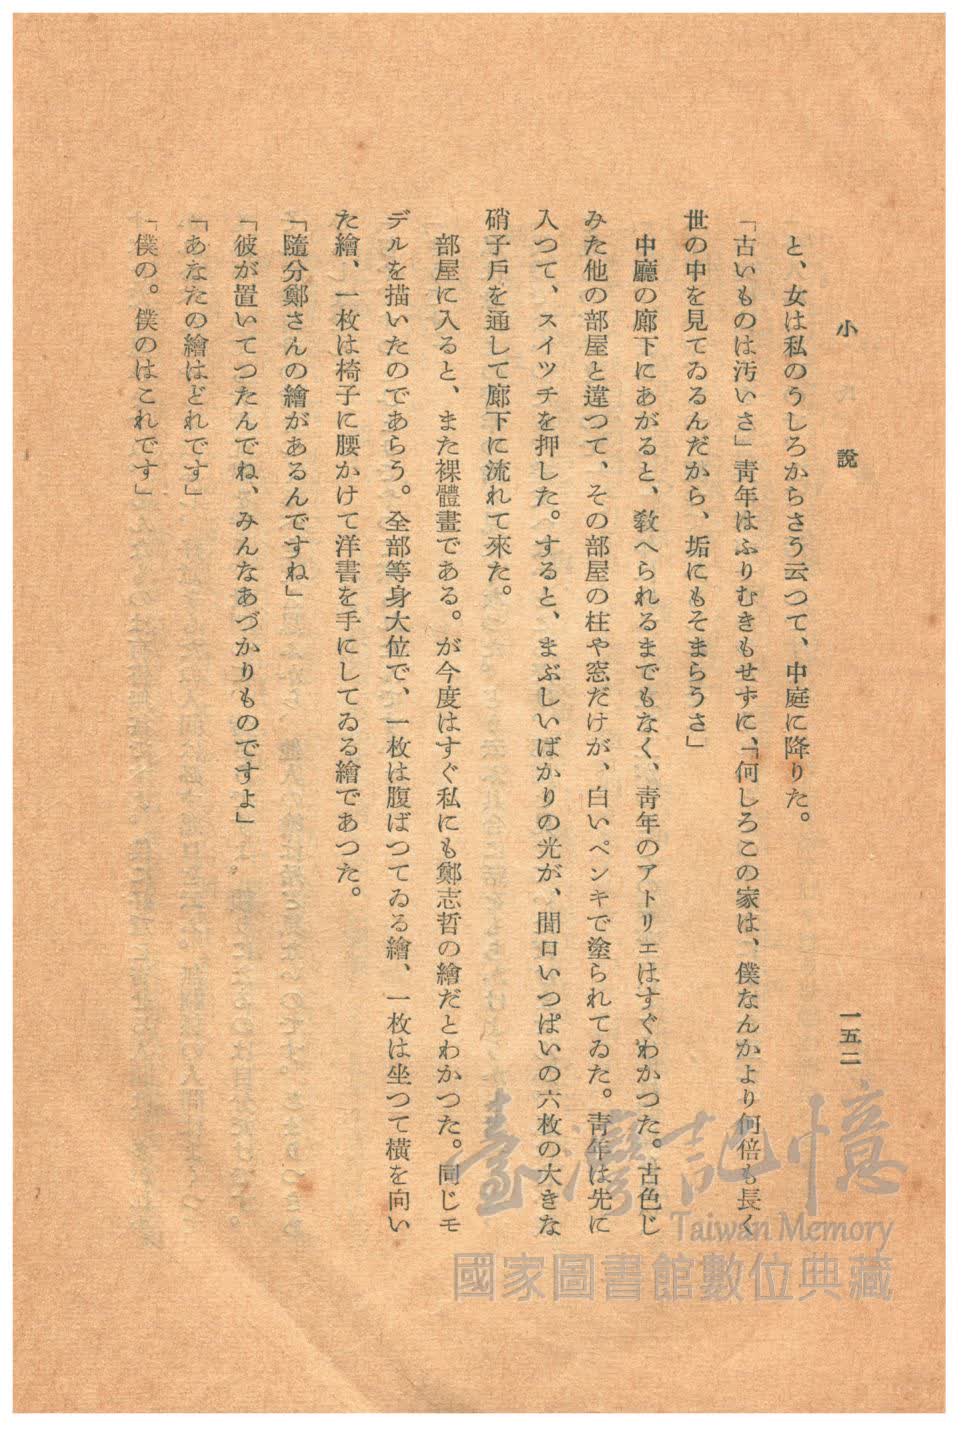 小說
一五二
と、女は私のうしろからさう云つて、中庭に降りた。
「古いものは汚いさ」靑年はふりむきもせずに、「何しろこの家は、僕なんかより何倍も長く
世の中を見てゐるんだから、垢にもそまらうさ」
中廳の廊下にあがると、敎へられるまでもなく、靑年のアトリエはすぐわかつた。古色じ
みた他の部屋と違つて、その部屋の柱や窓だけが、白いペンキで塗られてゐた。靑年は先に
入つて、スイツチを押した。すると、まぶしいばかりの光が、間口いつぱいの六枚の大きな
硝子戶を通して廊下に流れて來た。
部屋に入ると、また裸體畫である。が今度はすぐ私にも鄭志哲の繪だとわかつた。同じモ
デルを描いたのであらう。全部等身大位で、一枚は腹ばつてゐる繪、一枚は坐つて橫を向い
た繪、一枚は椅子に腰かけて洋書を手にしてゐる繪であつた。
「隨分鄭さんの繪があるんですね」
「彼が置いてつたんでね、みんなあづかりものですよ」
「あなたの繪はどれです」
「僕の。僕のはこれです」
臺灣記憶
Taiwan Memory
國家圖書館數位典藏